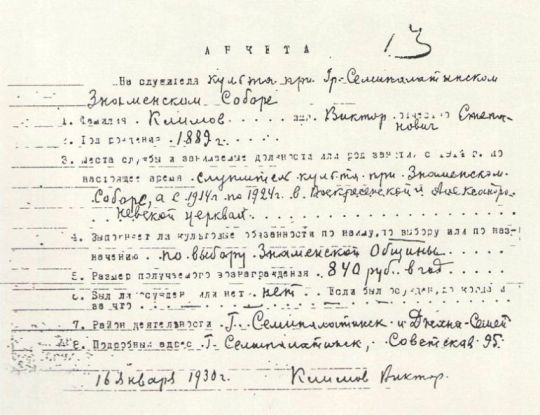 13
АНКЕТА
На служителя культа при Гр-Семипалатинском
Знаменском Соборе
1. Фамилия Климов имя Виктор отчество Степа-
нович
2. Год рождения 1889 г.
3. Места службы и занимаемые должности или род занятий с 1914 г. по
настоящее время служитель культа при Знаменском
Соборе, а с 1914г. по 1924г. в Воскресенской и Александро-
невской церквах
4. Выполняет ли культовые обязанности по найму, по выбору или по наз-
начению по выбору Знаменской Общины
5. Размер получаемого вознаграждения 840 руб. в год
6. Был ли осужден или нет нет Если был осужден, то когда и
за что
7. Район деятельности Г. Семипалатинск и
8. Подробный адрес Г. Семипалатинск, Советская 95.
16 Января 1930 г. Климов Виктор.